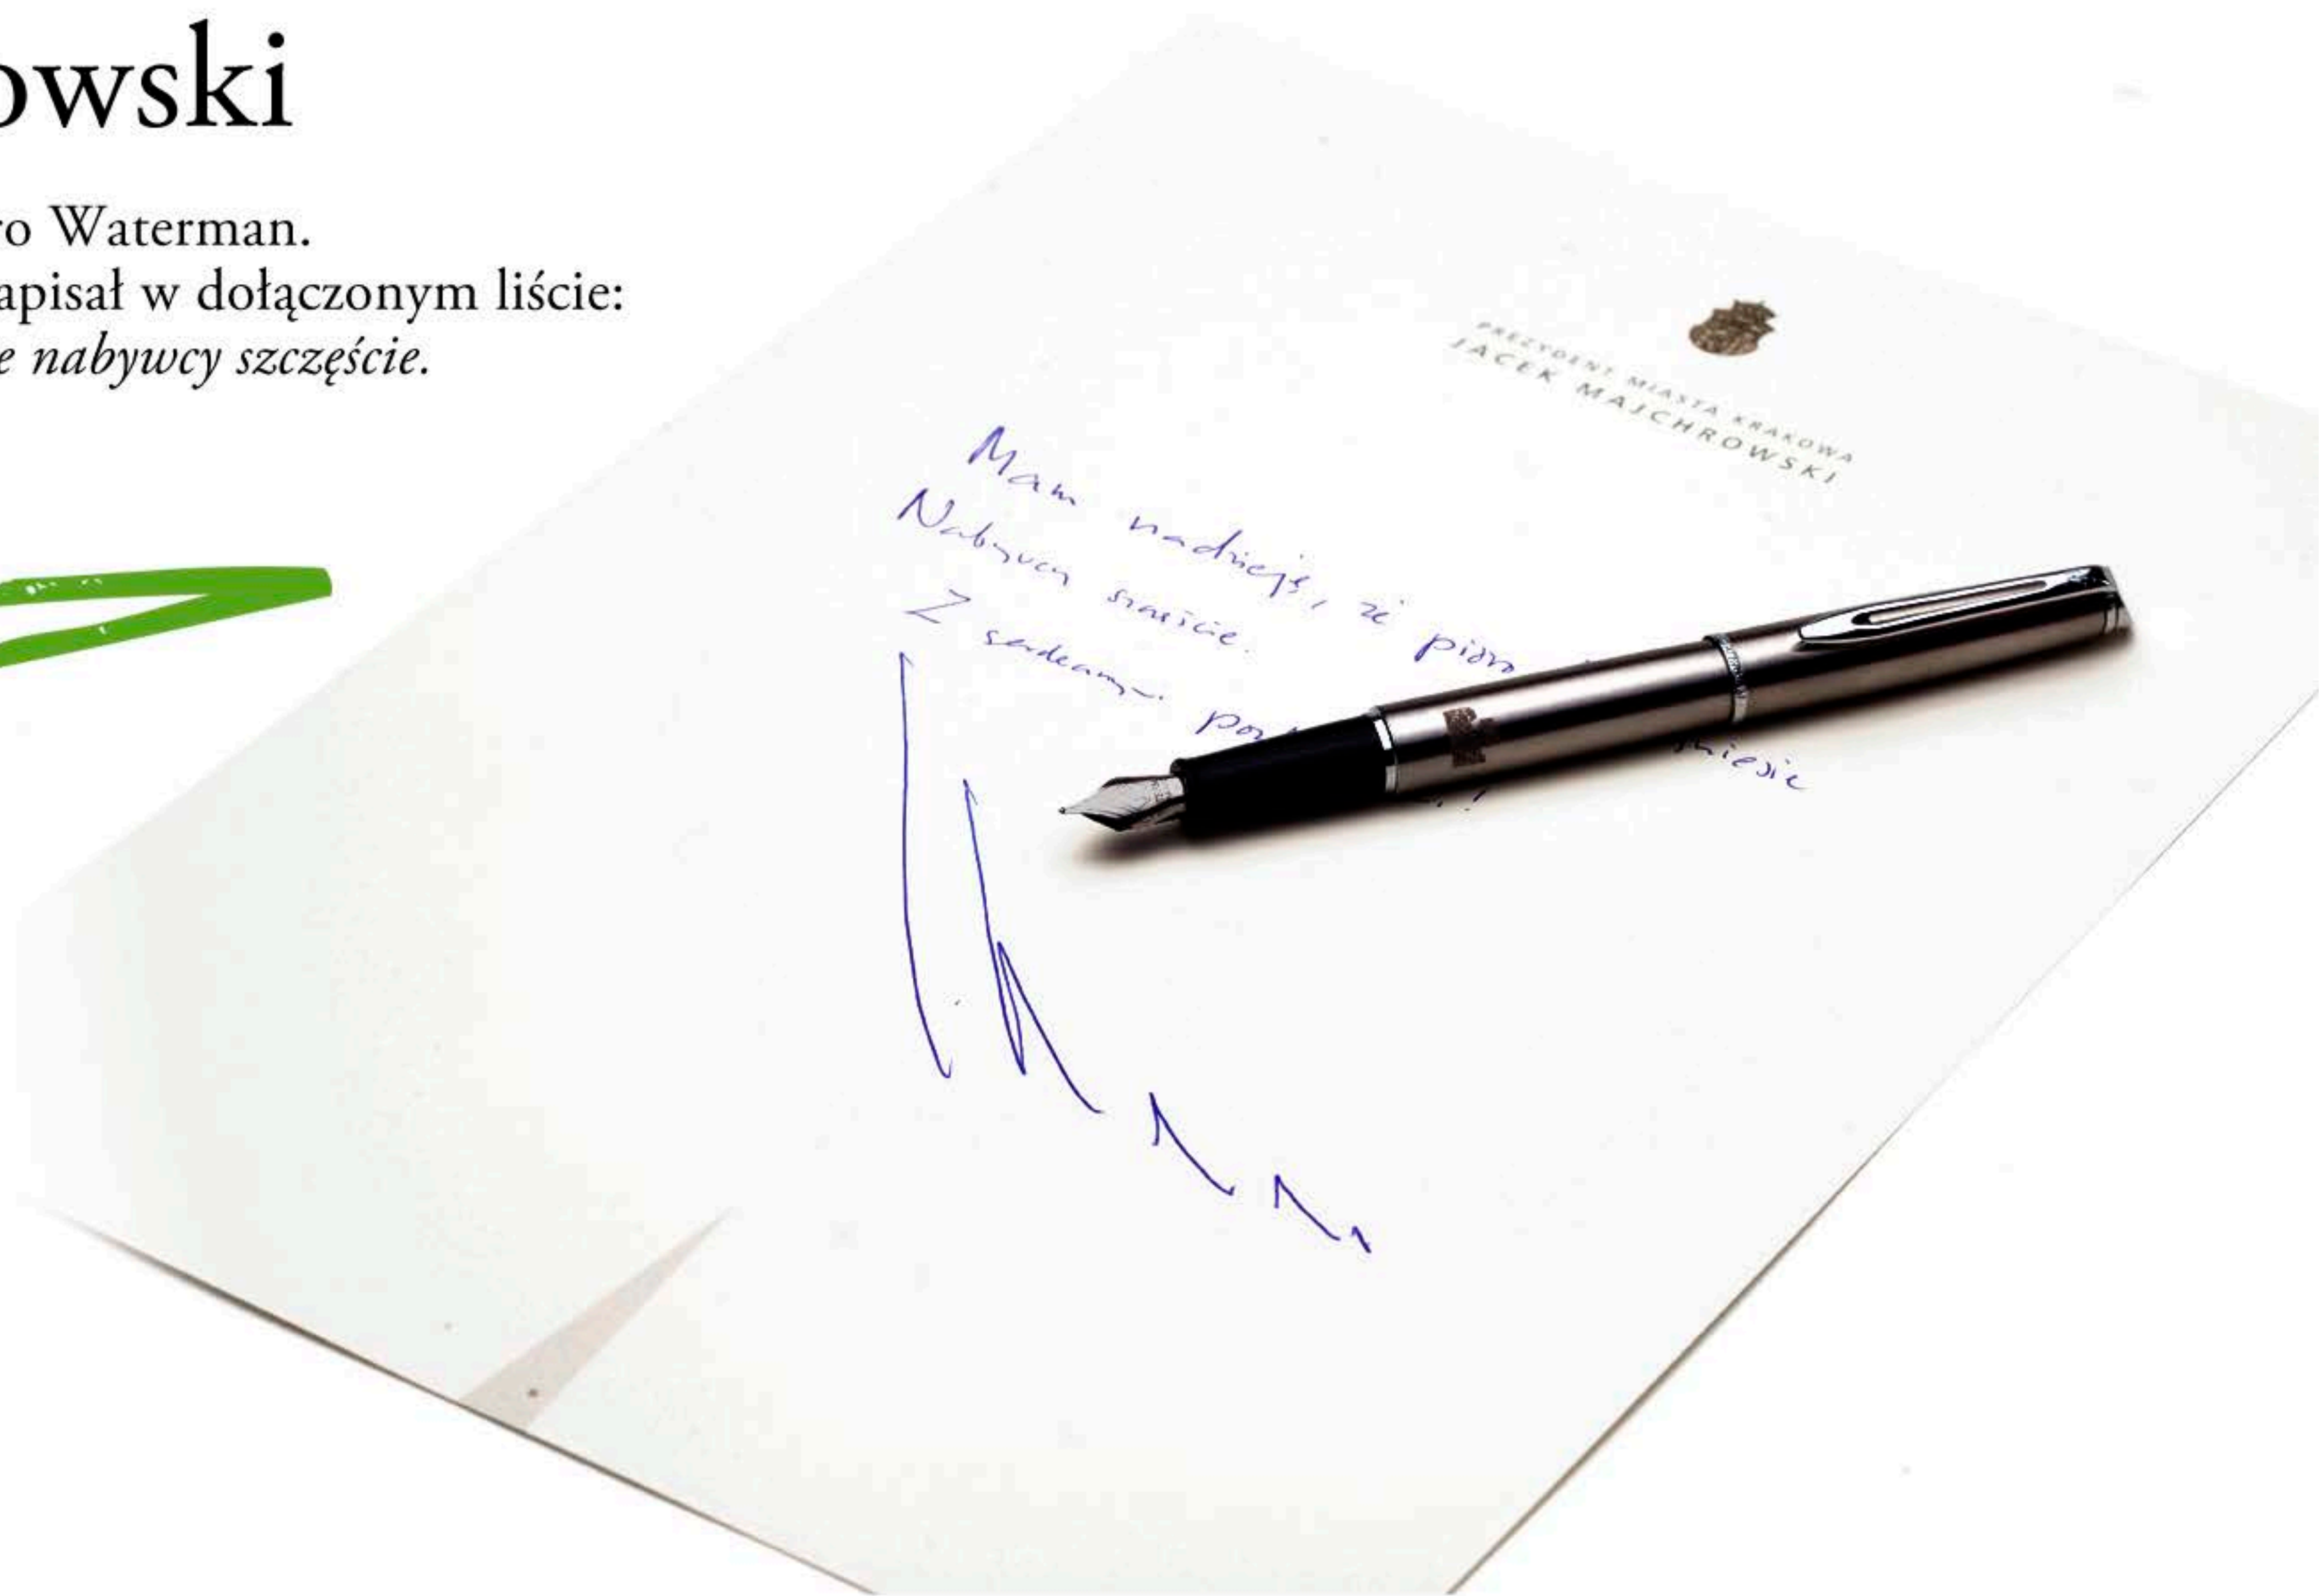 owski
ro Waterman.
apisał w dołączonym liście:
e nabywcy szczęście.
PREZYDENT MIASTA KRAKOWA
JACEK MAJCHROWSKI
Mam nadzieję, że pióro
Nabywcy szczęście.
Z serdecznymi